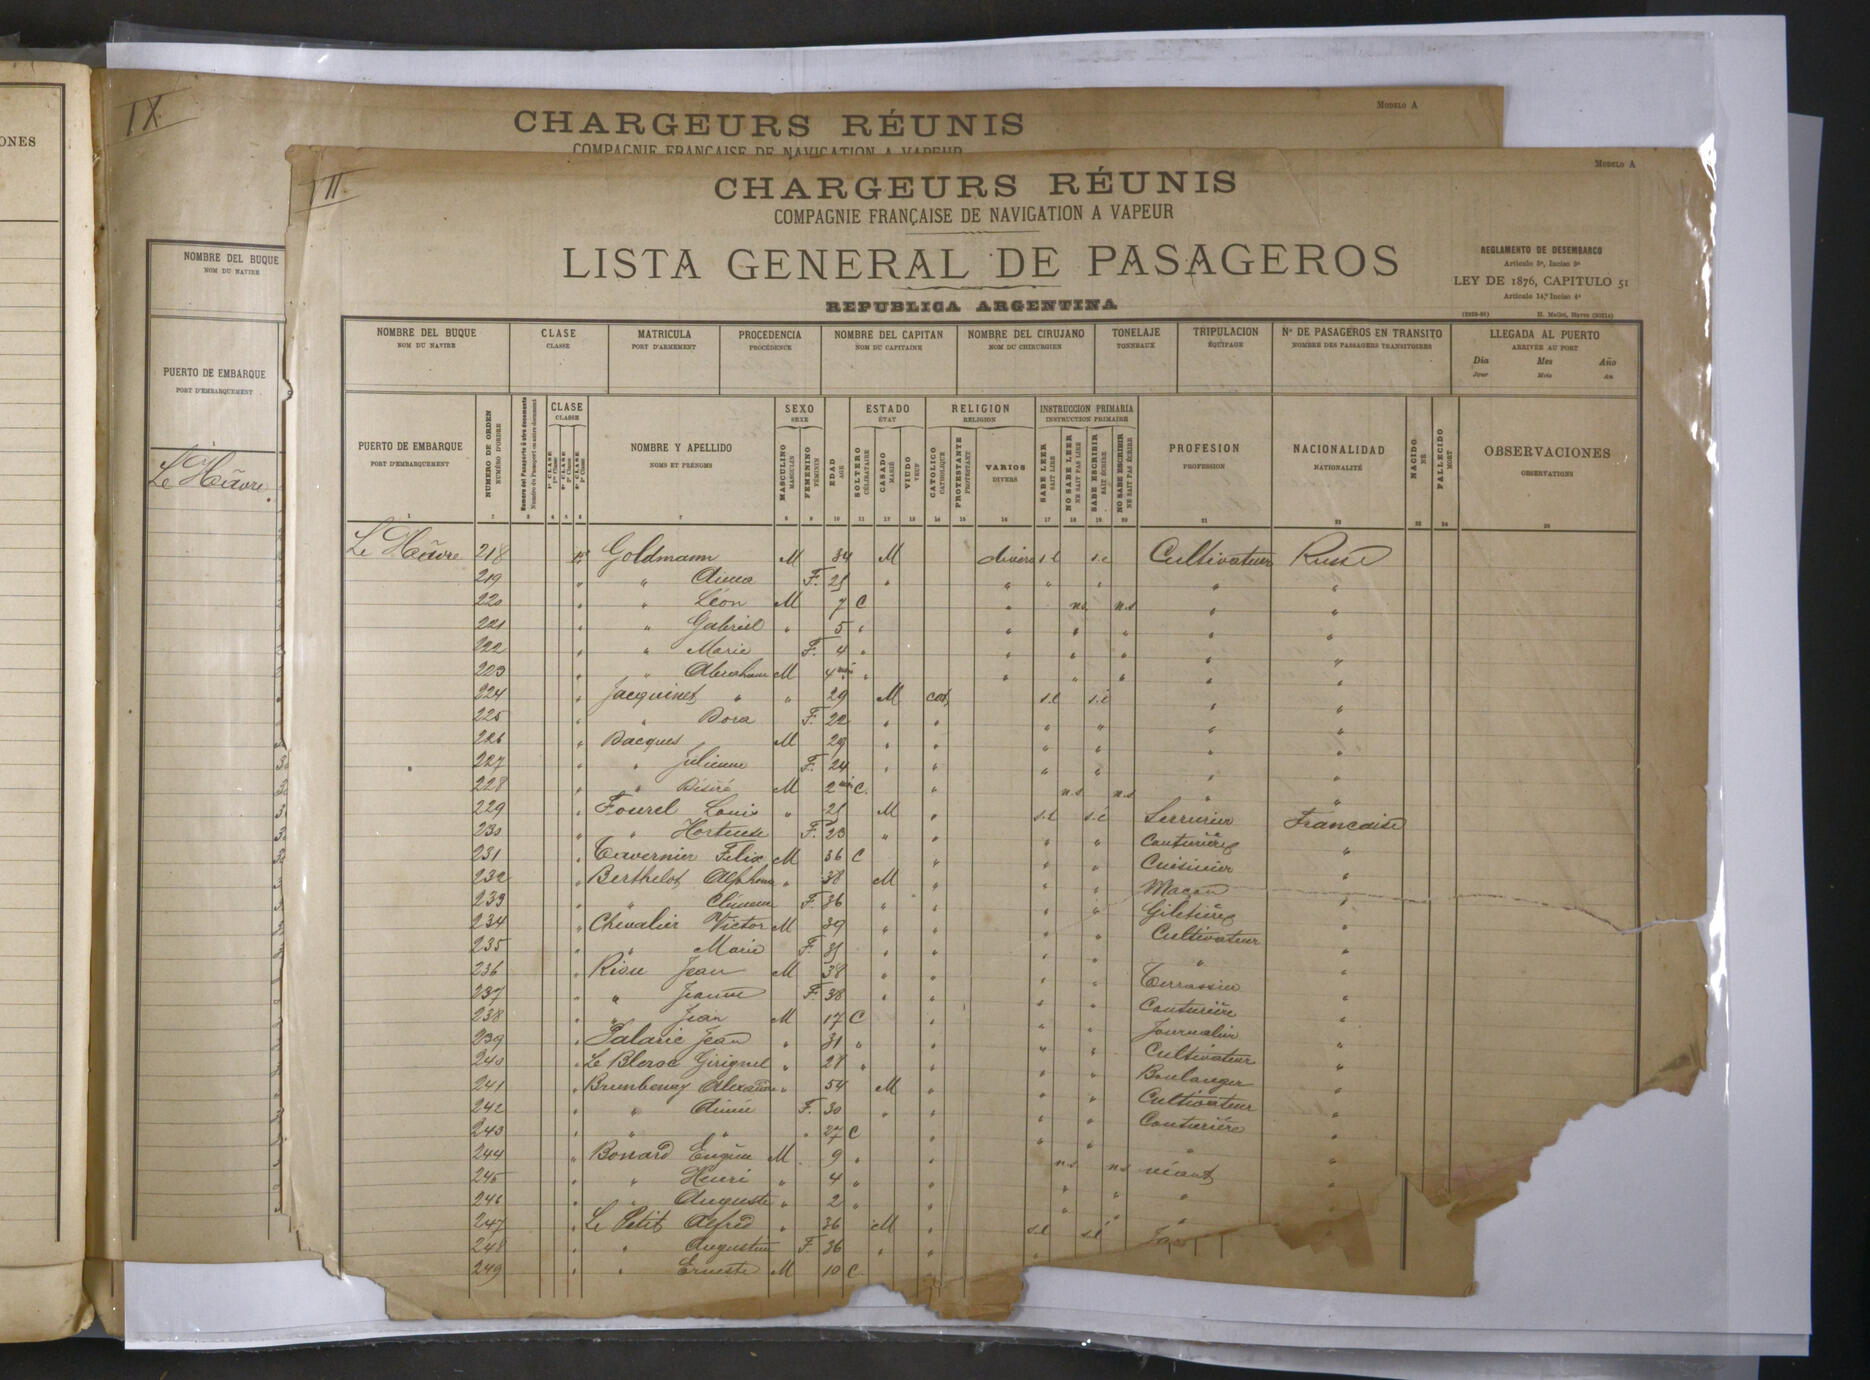 ONES
IX
MODELO A
CHARGEURS RÉUNIS
COMPAGNIE FRANÇAISE DE NAVIGATION A VAPEUR
NOMBRE DEL BUQUE
NOM DU NAVIRE
PUERTO DE EMBARQUE
PORT D'EMBARQUEMENT
Le Hâvre
II
MODELO A
CHARGEURS RÉUNIS
COMPAGNIE FRANÇAISE DE NAVIGATION A VAPEUR
LISTA GENERAL DE PASAGEROS
REPUBLICA ARGENTINA
REGLAMENTO DE DESEMBARCO
Articulo 5º, Inciso 9º
LEY DE 1876, CAPITULO 51
Articulo 14,º Inciso 4º
NOMBRE DEL BUQUE CLASE MATRICULA PROCEDENCIA NOMBRE DEL CAPITAN NOMBRE DEL CIRUJANO TONELAJE TRIPULACION Nº DE PASAGEROS EN TRANSITO LLEGADA AL PUERTO
NOM DU NAVIRE CLASSE PORT D'ARMEMENT PROCÉDENCE NOM DU CAPITAINE NOM DU CHIRURGIEN TONNEAUX ÉQUIPAGE NOMBRE DES PASSAGERS TRANSITOIRES ARRIVÉE AU PORT
Dia Mes Año
Jour Mois An
PUERTO DE EMBARQUE
PORT D'EMBARQUEMENT
NUMERO DE ORDEN
NUMÉRO D'ORDRE
CLASE
CLASSE
NOMBRE Y APELLIDO
NOMS ET PRÉNOMS
SEXO
SEXE
MASCULINO
MASCULIN
FEMENINO
FÉMININ
EDAD
AGE
ESTADO
ÉTAT
SOLTERO
CÉLIBATAIRE
CASADO
MARIÉ
VIUDO
VEUF
RELIGION
RELIGION
CATOLICO
CATHOLIQUE
PROTESTANTE
PROTESTANT
VARIOS
DIVERS
INSTRUCCION PRIMARIA
INSTRUCTION PRIMAIRE
SABE LEER
SAIT LIRE
NO SABE LEER
NE SAIT PAS LIRE
SABE ESCRIBIR
SAIT ÉCRIRE
NO SABE ESCRIBIR
NE SAIT PAS ÉCRIRE
PROFESION
PROFESSION
NACIONALIDAD
NATIONALITÉ
NACIDO
NÉ
FALLECIDO
MORT
OBSERVACIONES
OBSERVATIONS
Le Hâvre 218 Goldmann M 34 M divers s.l s.é Cultivateur Russe
219 " F. 25 " " " " " "
220 " Léon M 7 C " n.s n.s " "
221 " Gabriel " 5 " " " " " "
222 " Marie F. 4 " " " " " "
223 " Abraham M 4 mois " " " " " "
224 Jacquinet " " 29 M cat. s.l s.é " "
225 " Dora F. 22 " " " " " "
226 Dacques M 29 " " " " " "
227 " Julienne F. 24 " " " " " "
228 " Désiré M 2 mois C. " n.s n.s " "
229 Fourel Louis " 25 M " s.l s.é Serrurier Francaise
230 " Hortense F. 23 " " " " Couturière "
231 Tavernier Felix M 36 C " " " Cuisinier "
232 Berthelot Alphonse " 38 M " " " Maçon "
233 " F. 36 " " " " Giletière "
234 Chevalier Victor M 39 " " " " Cultivateur "
235 " Marie F. 35 " " " " " "
236 Riou Jean M 38 " " " " Terrassier "
237 " Jeanne F. 38 " " " " Couturière "
238 " Jean M 17 C " " " Journalier "
239 Palaric Jean " 31 " " " " Cultivateur "
240 Le " 28 " " " " Boulanger "
241 " 54 M " " " Cultivateur "
242 " Aimée F. 30 " " " " Couturière "
243 " " " 27 C " " " " "
244 Bonard Eugène M 9 " " n.s n.s néant "
245 " Henri " 4 " " " " " "
246 " Auguste " 2 " " " " "
247 Le Petit Alfred " 36 M " s.l s.é
248 " Augustine F. 36 " " "
249 " Ernest M 10 C.